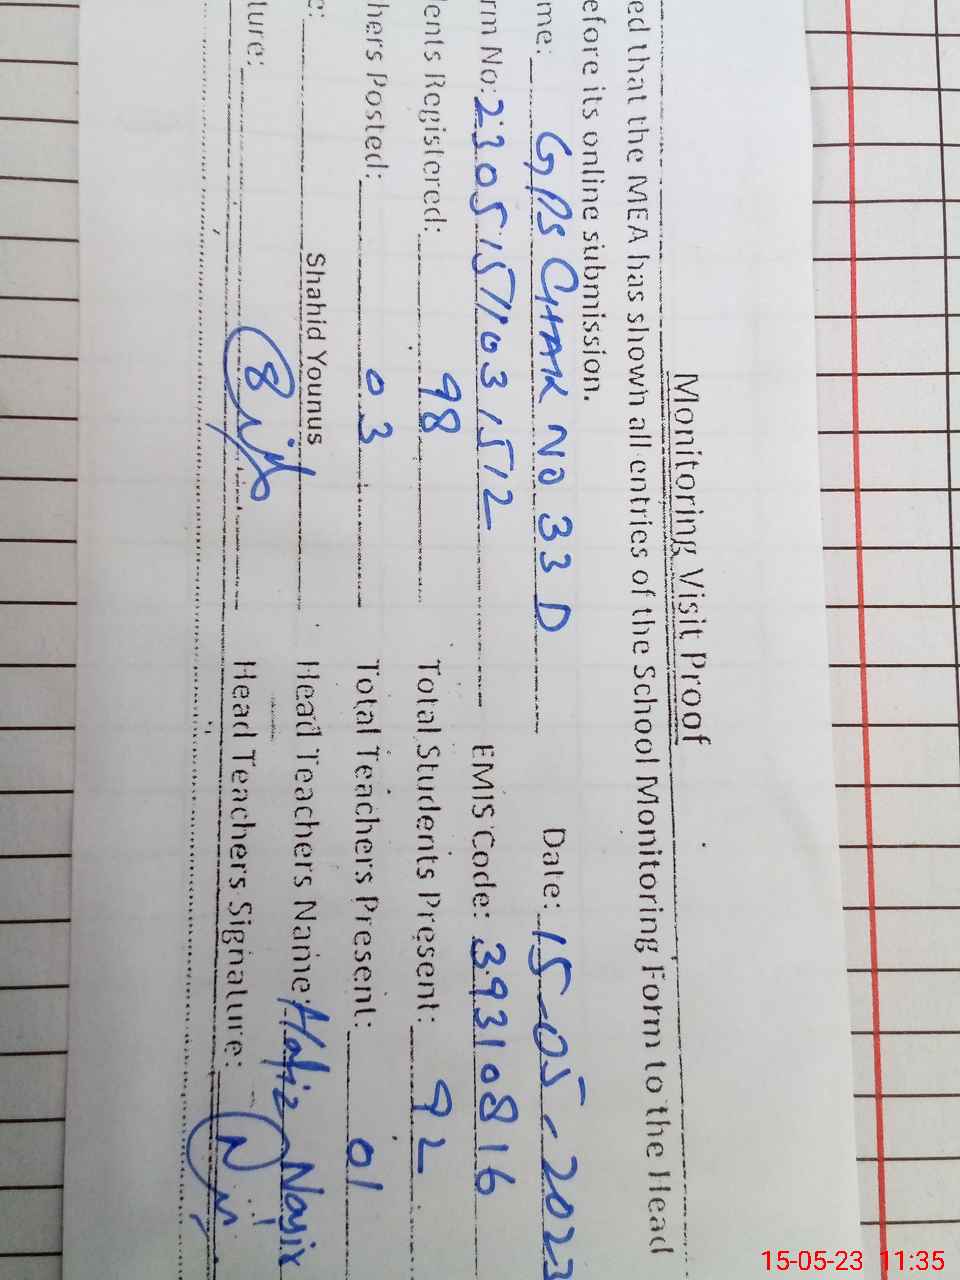 Monitoring Visit Proof
ed that the MEA has shown all entries of the School Monitoring Form to the Head
efore its online submission.
me: GPS CHAK NO 33 D Date: 15-05-2023
rm No: 23051511031512 EMIS Code: 39310816
lents Registered: 98 Total Students Present: 92
hers Posted: 03 Total Teachers Present: 01
e: Shahid Younus Head Teachers Name: Hafiz Nasir
ture: Head Teachers Signature:
15-05-23 11:35